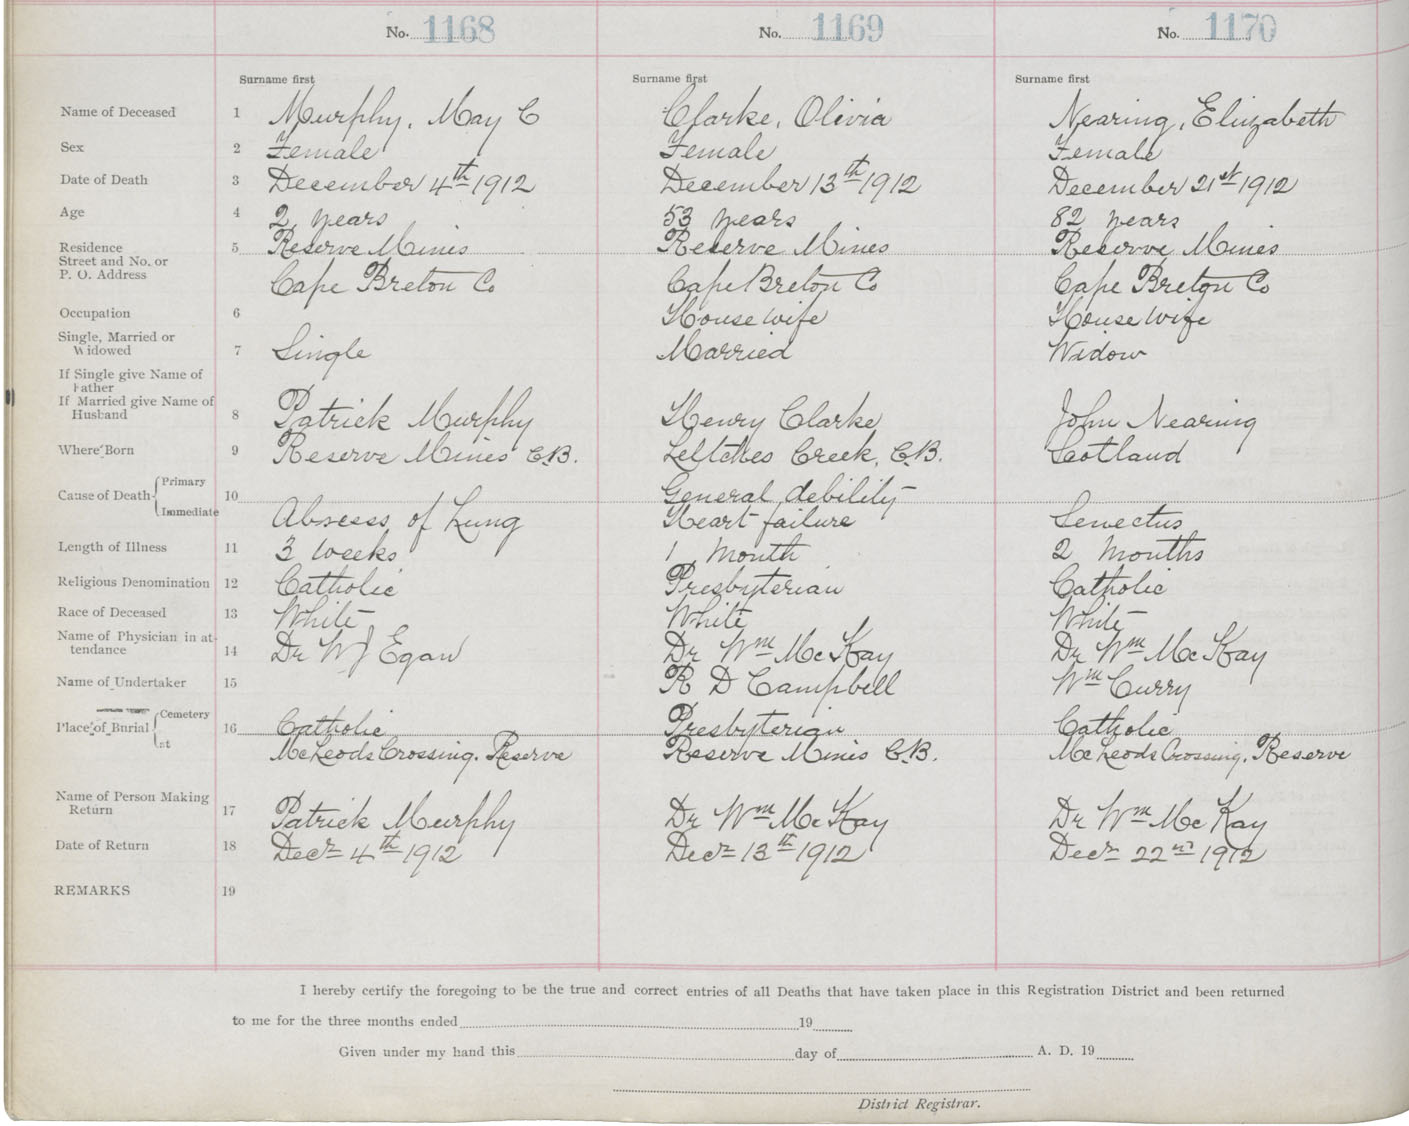 No. 1168 No. 1169 No. 1170
Surname first Surname first Surname first
Name of Deceased 1 Murphy, May C Clarke, Olivia Nearing, Elizabeth
Sex 2 Female Female Female
Date of Death 3 December 4th 1912 December 13th 1912 December 21st 1912
Age 4 2 years 53 years 82 years
Residence 5 Reserve Mines Reserve Mines Reserve Mines
Street and No. or
P. O. Address Cape Breton Co Cape Breton Co Cape Breton Co
Occupation 6 House wife House wife
Single, Married or
Widowed 7 Single Married Widow
If Single give Name of
Father
If Married give Name of
Husband 8 Patrick Murphy Henry Clarke John Nearing
Where Born 9 Reserve Mines C.B. Leitches Creek, C.B. Scotland
Cause of Death Primary 10 General debility
Immediate Abscess of Lung Heart failure Senectus
Length of Illness 11 3 weeks 1 Month 2 Months
Religious Denomination 12 Catholic Presbyterian Catholic
Race of Deceased 13 White White White
Name of Physician in at-
tendance 14 Dr W J Egan Dr Wm McKay Dr Wm McKay
Name of Undertaker 15 R D Campbell Wm Curry
Place of Burial Cemetery 16 Catholic Presbyterian Catholic
at McLeods Crossing. Reserve Reserve Mines C.B. McLeods Crossing. Reserve
Name of Person Making
Return 17 Patrick Murphy Dr Wm McKay Dr Wm McKay
Date of Return 18 Decr 4th 1912 Decr 13th 1912 Decr 22nd 1912
REMARKS 19
I hereby certify the foregoing to be the true and correct entries of all Deaths that have taken place in this Registration District and been returned
to me for the three months ended 19
Given under my hand this day of A. D. 19
District Registrar.